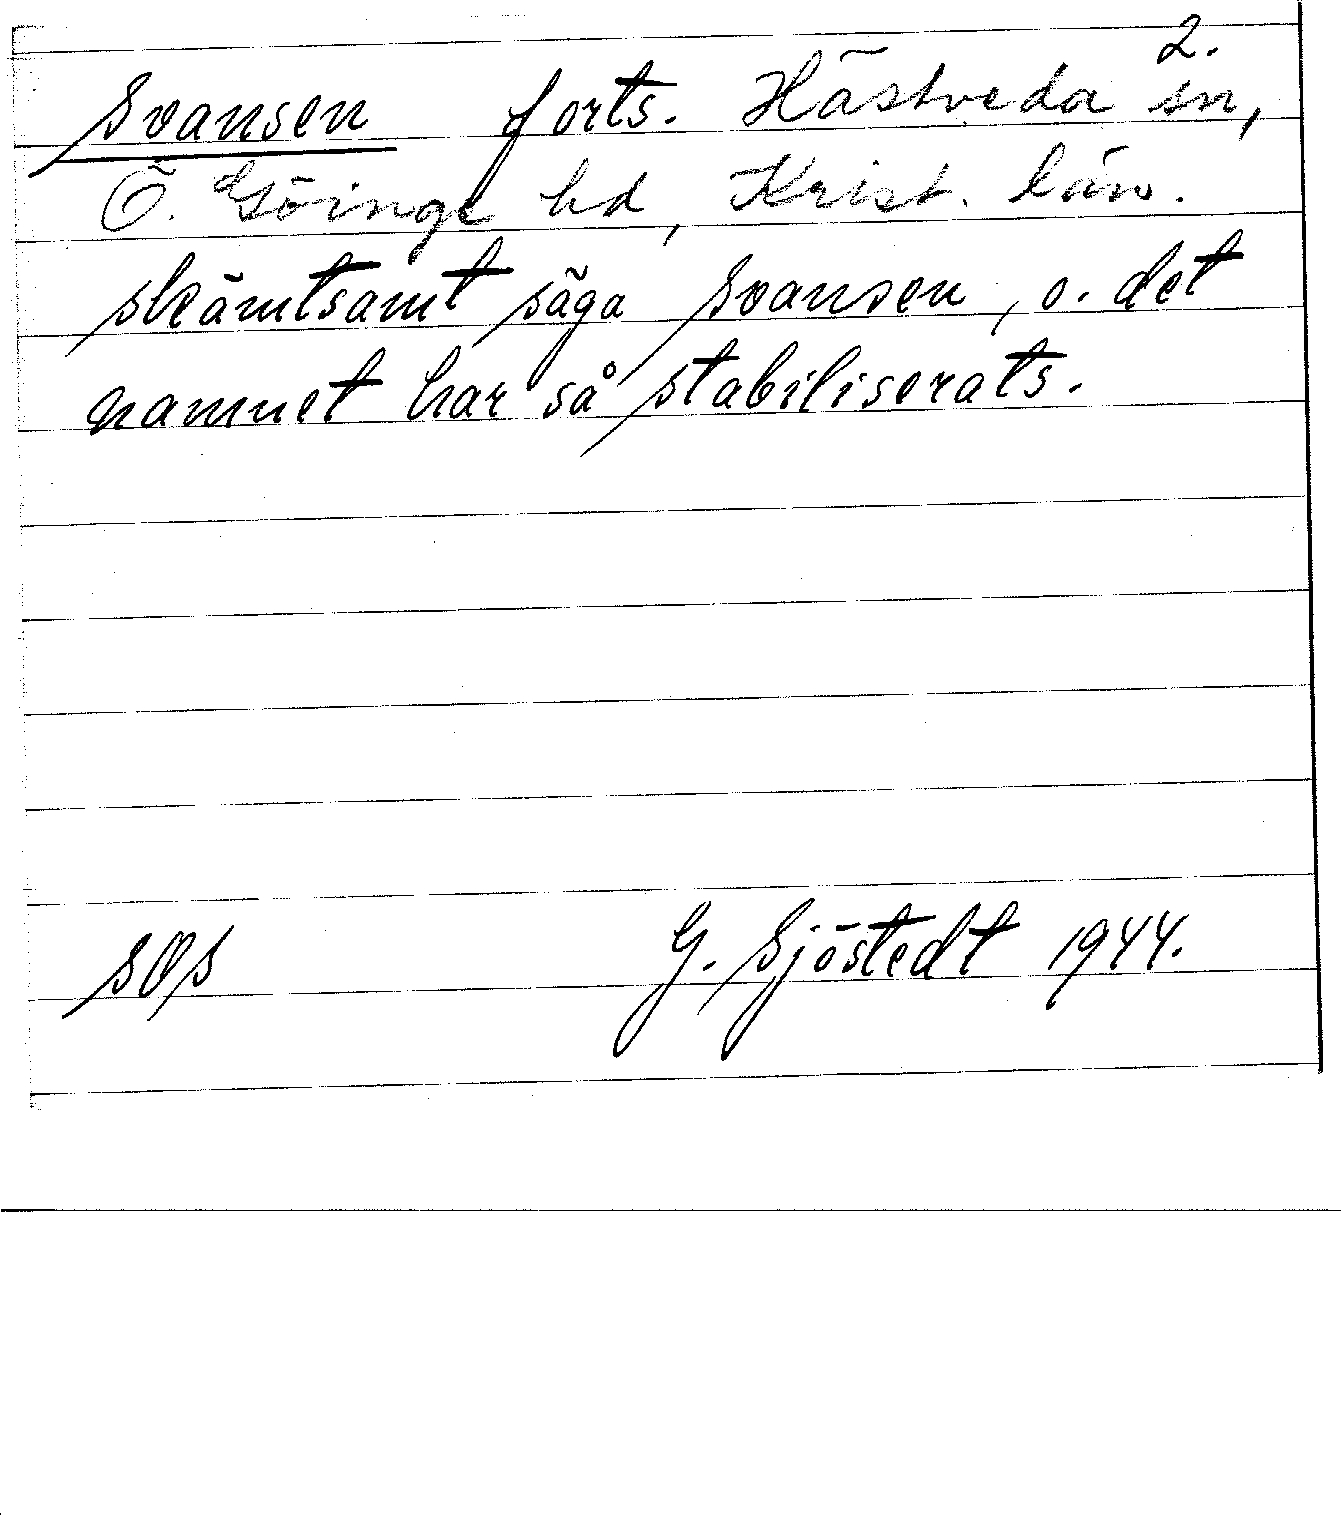 2.
Svansen forts. Hästveda sn,
Ö. Göinge hd, Krist. län.
skämtsamt säga Svansen, o. det
namnet har så stabiliserats.
SOS G. Sjöstedt 1944.